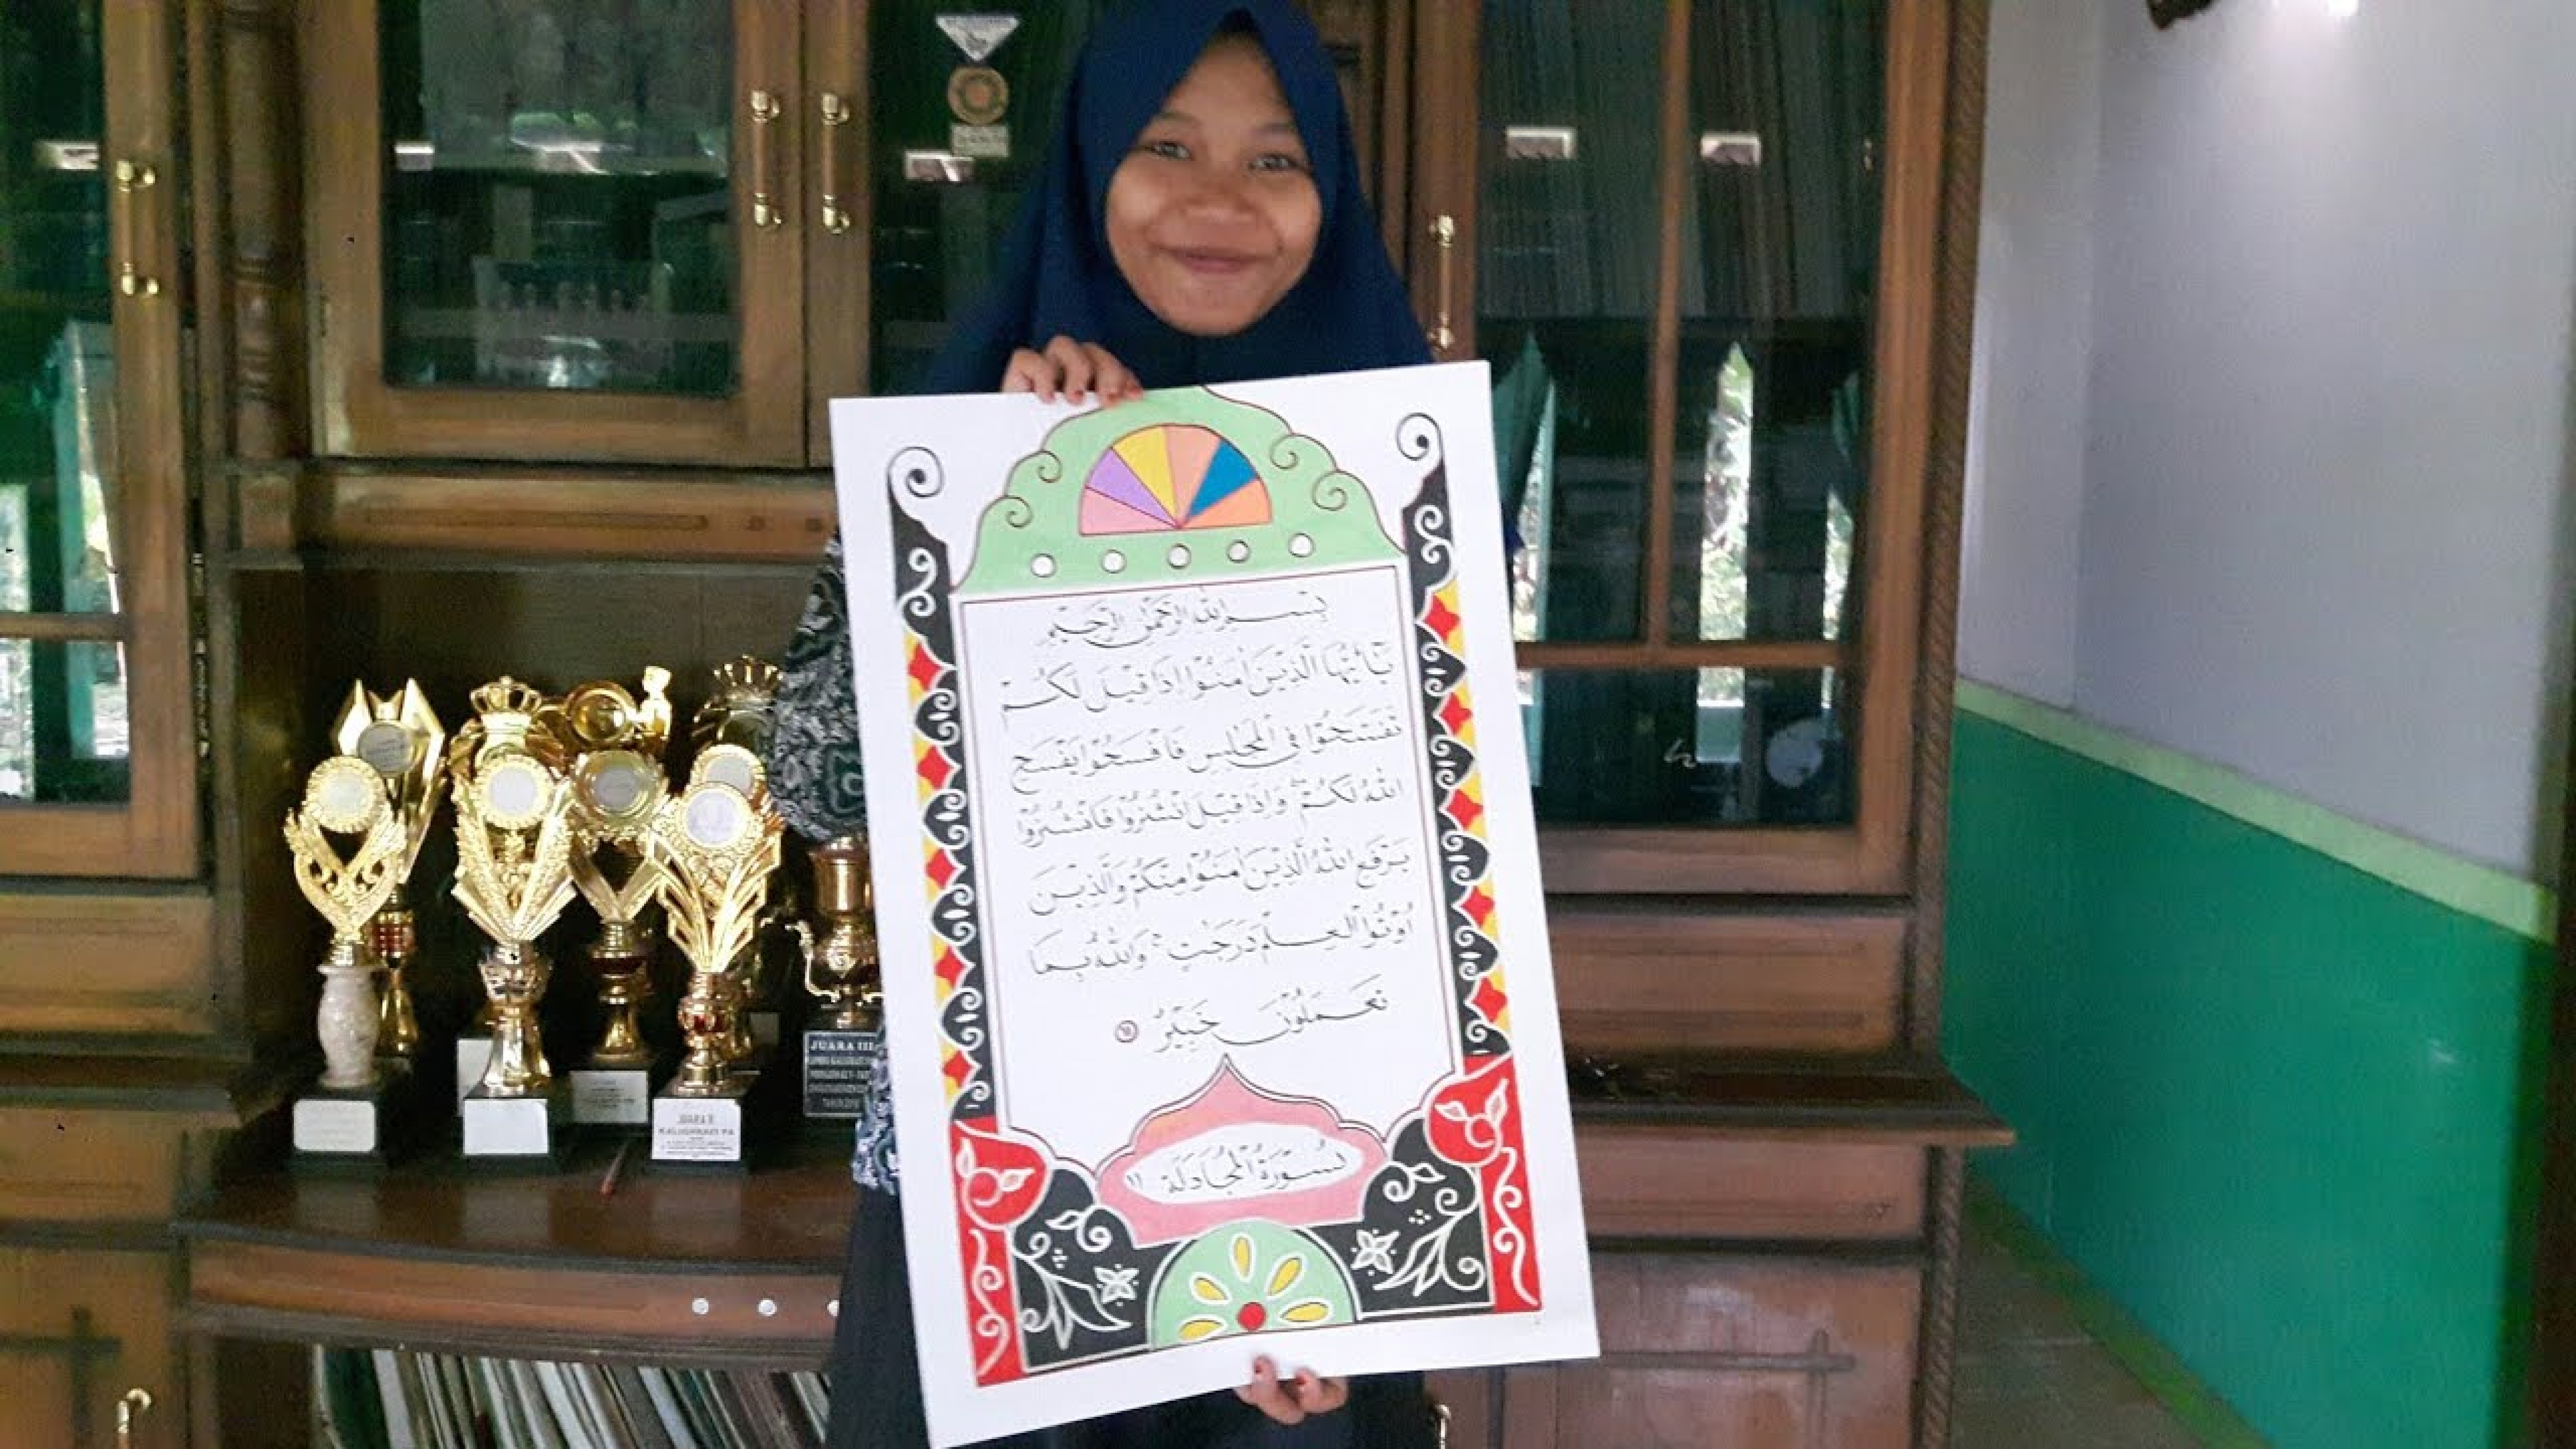 بِسْمِ اللهِ الرَّحْمٰنِ الرَّحِيْمِ
يٰٓاَيُّهَا الَّذِيْنَ اٰمَنُوْا اِذَا قِيْلَ لَكُمْ
تَفَسَّحُوْا فِى الْمَجٰلِسِ فَافْسَحُوْا يَفْسَحِ
اللهُ لَكُمْۚ وَاِذَا قِيْلَ انْشُزُوْا فَانْشُزُوْا
يَرْفَعِ اللهُ الَّذِيْنَ اٰمَنُوْا مِنْكُمْ وَالَّذِيْنَ
اُوْتُوا الْعِلْمَ دَرَجٰتٍۗ وَاللهُ بِمَا
تَعْمَلُوْنَ خَبِيْرٌ ١١
سُوْرَةُ الْمُجَادَلَة ١١
JUARA III
KALIGRAFI PA